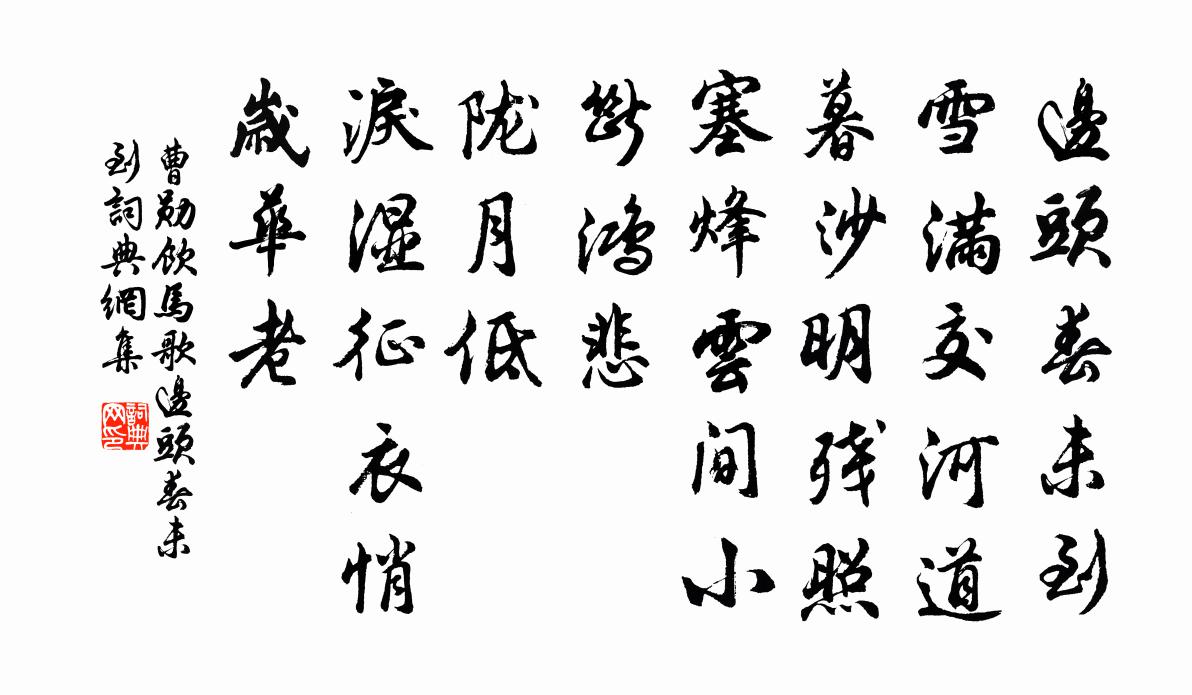 邊頭春未到
雪滿交河道
暮沙明残照
塞烽雲間小
斷鴻悲
陇月低
淚湿征衣悄
歲華老
曹勛飲馬歌邊頭春未
到詞典網集
詞典
网印